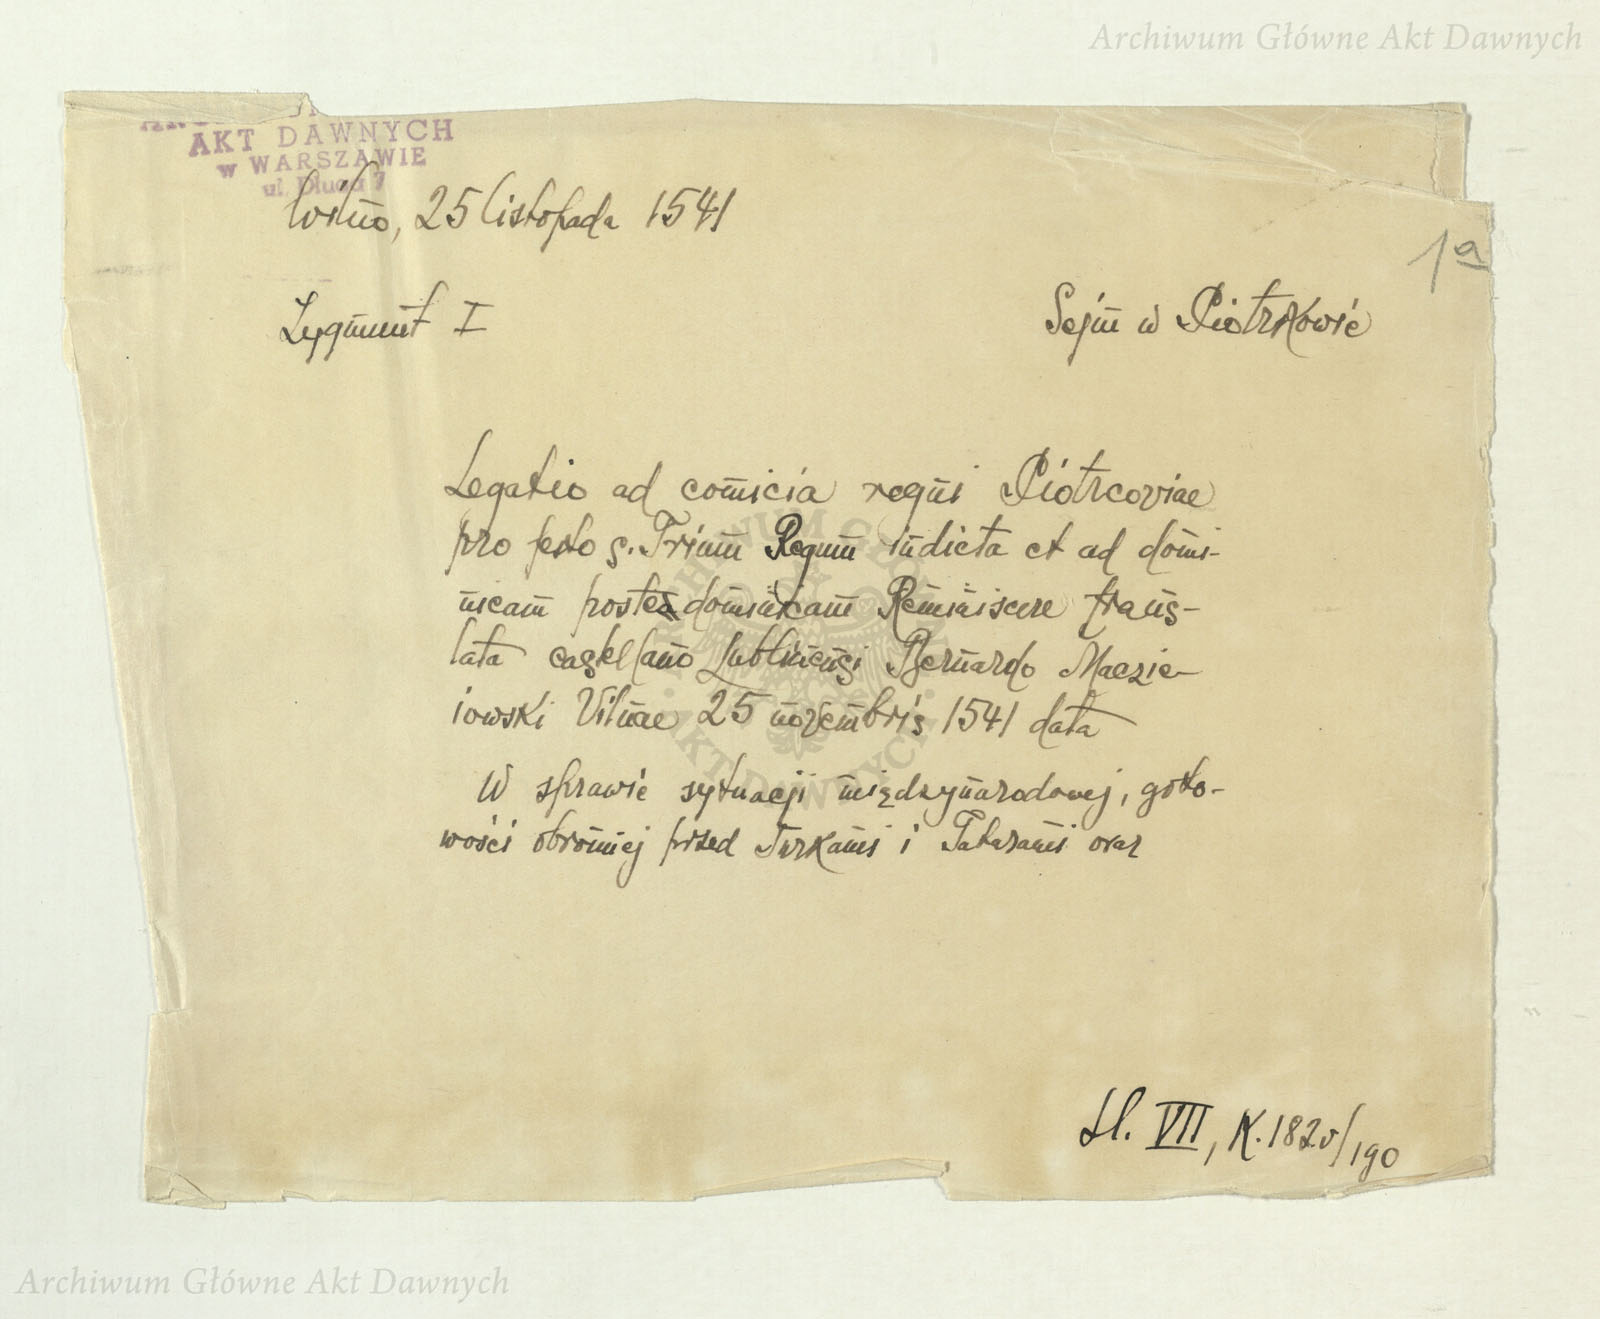 Archiwum Główne Akt Dawnych
AKT DAWNYCH
w WARSZAWIE
ul. Długa 7
Wilno, 25 listopada 1541
1a
Zygmunt I
Sejm w Piotrkowie
Legatio ad comicia regni Piotrcoviae
pro festo s. Trium Regum indicta et ad domi-
nicam postea dominicam Reminiscere trans-
lata castellano Lublinensi Bernardo Maczie-
iowski Vilnae 25 novembris 1541 data
W sprawie sytuacji międzynarodowej, goto-
wości obronnej przed Turkami i Tatarami oraz
Ll. VII, K. 182v/190
ARCHIWUM GŁÓWNE
AKT DAWNYCH
Archiwum Główne Akt Dawnych